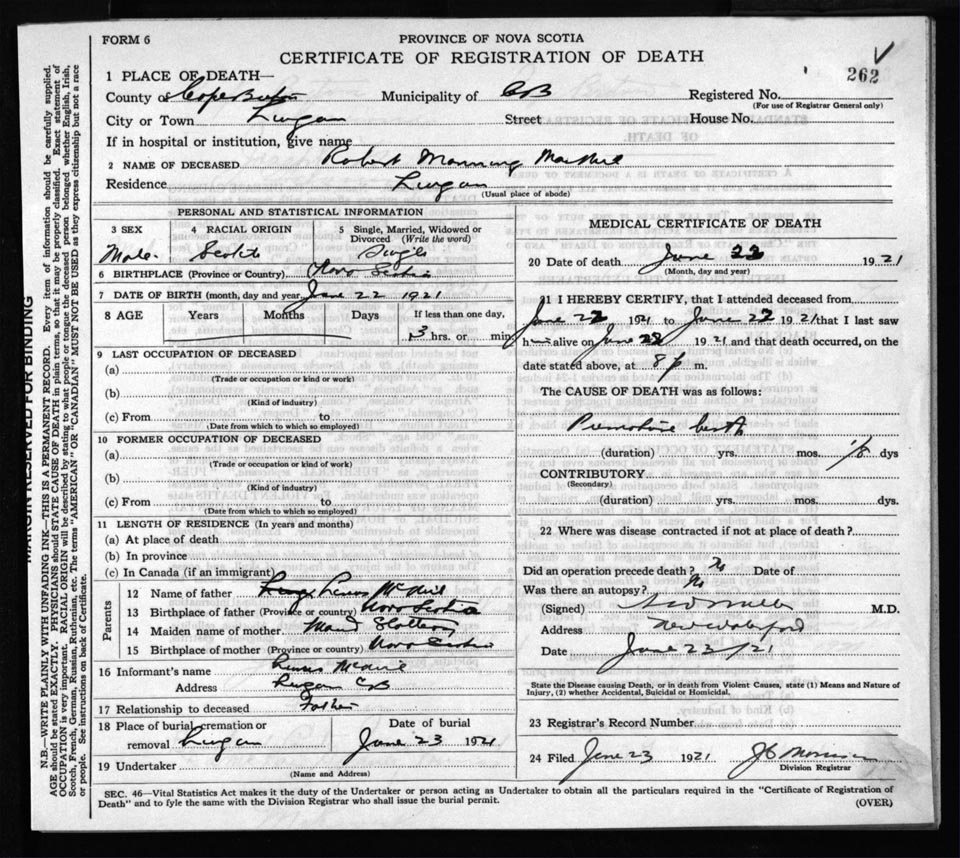 FORM 6
PROVINCE OF NOVA SCOTIA
CERTIFICATE OF REGISTRATION OF DEATH
262
1 PLACE OF DEATH—
County of Cape Breton Municipality of CB Registered No.
(For use of Registrar General only)
City or Town Lingan Street House No.
If in hospital or institution, give name
2 NAME OF DECEASED Robert Manning MacNeil
Residence Lingan
(Usual place of abode)
PERSONAL AND STATISTICAL INFORMATION
3 SEX 4 RACIAL ORIGIN 5 Single, Married, Widowed or Divorced (Write the word)
Male Scotch Single
6 BIRTHPLACE (Province or Country) Nova Scotia
7 DATE OF BIRTH (month, day and year) June 22 1921
8 AGE Years Months Days If less than one day,
3 hrs. or min
9 LAST OCCUPATION OF DECEASED
(a)
(Trade or occupation or kind or work)
(b)
(Kind of industry)
(c) From to
(Date from which to which so employed)
10 FORMER OCCUPATION OF DECEASED
(a)
(Trade or occupation or kind of work)
(b)
(Kind of industry)
(c) From to
(Date from which to which so employed)
11 LENGTH OF RESIDENCE (In years and months)
(a) At place of death
(b) In province
(c) In Canada (if an immigrant)
Parents
12 Name of father McNeil
13 Birthplace of father (Province or country) Nova Scotia
14 Maiden name of mother Slattery
15 Birthplace of mother (Province or country) Nova Scotia
16 Informant's name McNeil
Address Lingan CB
17 Relationship to deceased Father
18 Place of burial, cremation or Date of burial
removal Lingan June 23 1921
19 Undertaker
(Name and Address)
MEDICAL CERTIFICATE OF DEATH
20 Date of death June 22 1921
(Month, day and year)
21 I HEREBY CERTIFY, that I attended deceased from
June 22 1921 to June 22 1921 that I last saw
him alive on June 22 1921 and that death occurred, on the
date stated above, at 8 p m.
The CAUSE OF DEATH was as follows:
Premature birth
(duration) yrs. mos. 1/8 dys
CONTRIBUTORY
(Secondary)
(duration) yrs. mos. dys.
22 Where was disease contracted if not at place of death?
Did an operation precede death? No Date of
Was there an autopsy? No
(Signed) M.D.
Address New Waterford
Date June 23/21
State the Disease causing Death, or in death from Violent Causes, state (1) Means and Nature of
Injury, (2) whether Accidental, Suicidal or Homicidal.
23 Registrar's Record Number
24 Filed June 23 1921
Division Registrar
SEC. 46—Vital Statistics Act makes it the duty of the Undertaker or person acting as Undertaker to obtain all the particulars required in the "Certificate of Registration of
Death" and to fyle the same with the Division Registrar who shall issue the burial permit.
(OVER)
MARGIN RESERVED FOR BINDING
N.B.—WRITE PLAINLY WITH UNFADING INK—THIS IS A PERMANENT RECORD. Every item of information should be carefully supplied.
AGE should be stated EXACTLY. PHYSICIANS should STATE CAUSE OF DEATH in plain terms, so that it may be properly classified. Exact statement of
OCCUPATION is very important. RACIAL ORIGIN will be described by stating to what people or tongue the deceased person belonged whether English, Irish,
Scotch, French, German, Russian, Ruthenian, etc. The terms "AMERICAN" OR "CANADIAN" MUST NOT BE USED as they express citizenship but not a race
or people. See instructions on back of Certificate.